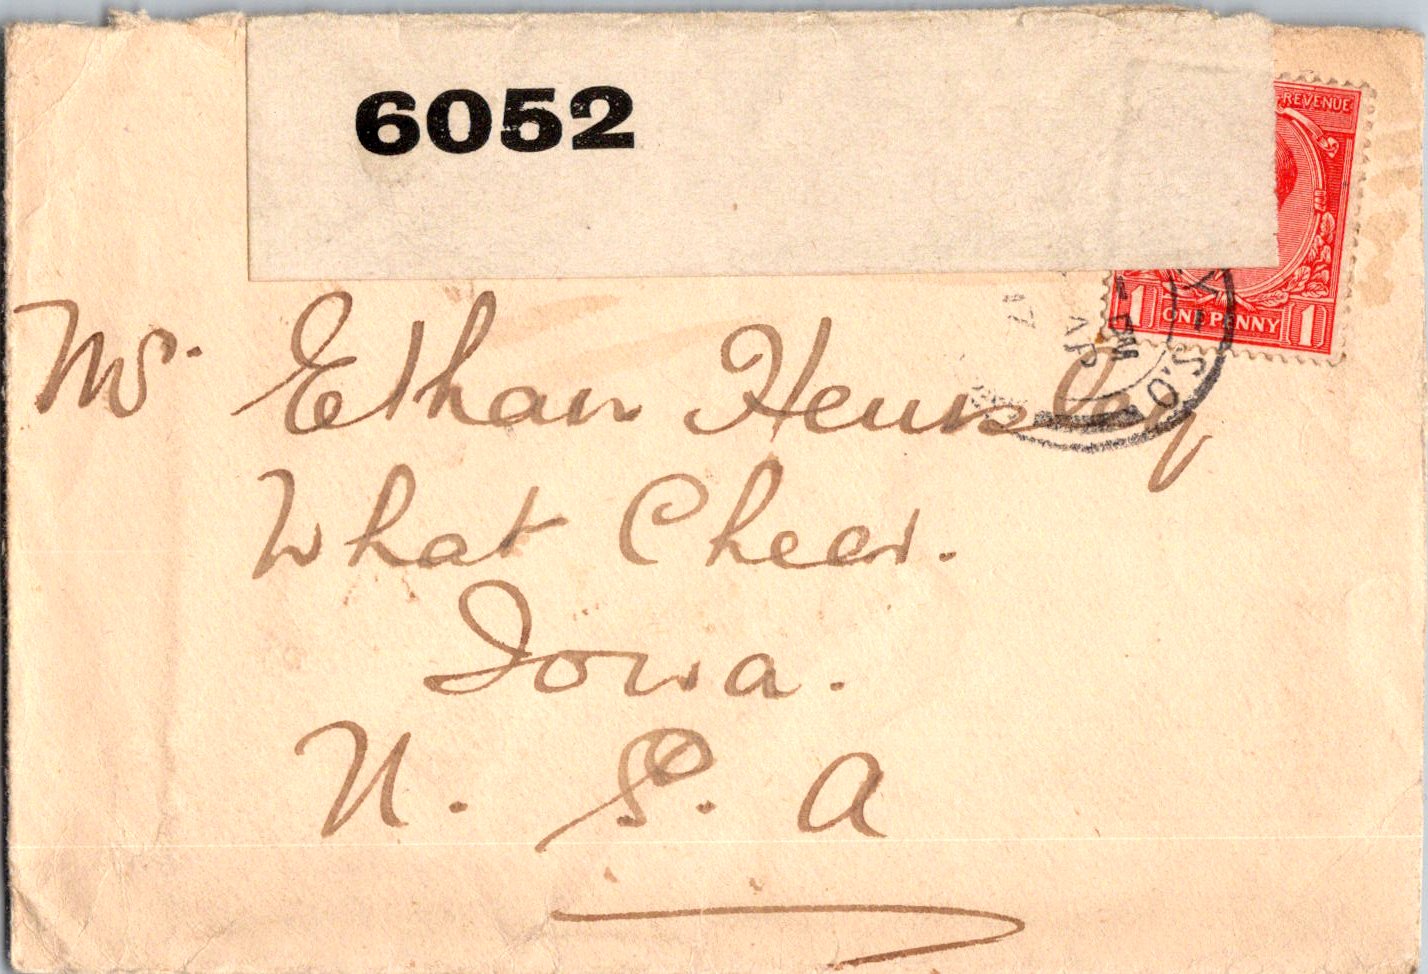 6052
REVENUE
1 ONE PENNY 1
AP
Mr. Ethan Hensley
What Cheer.
Iowa.
U. S. A